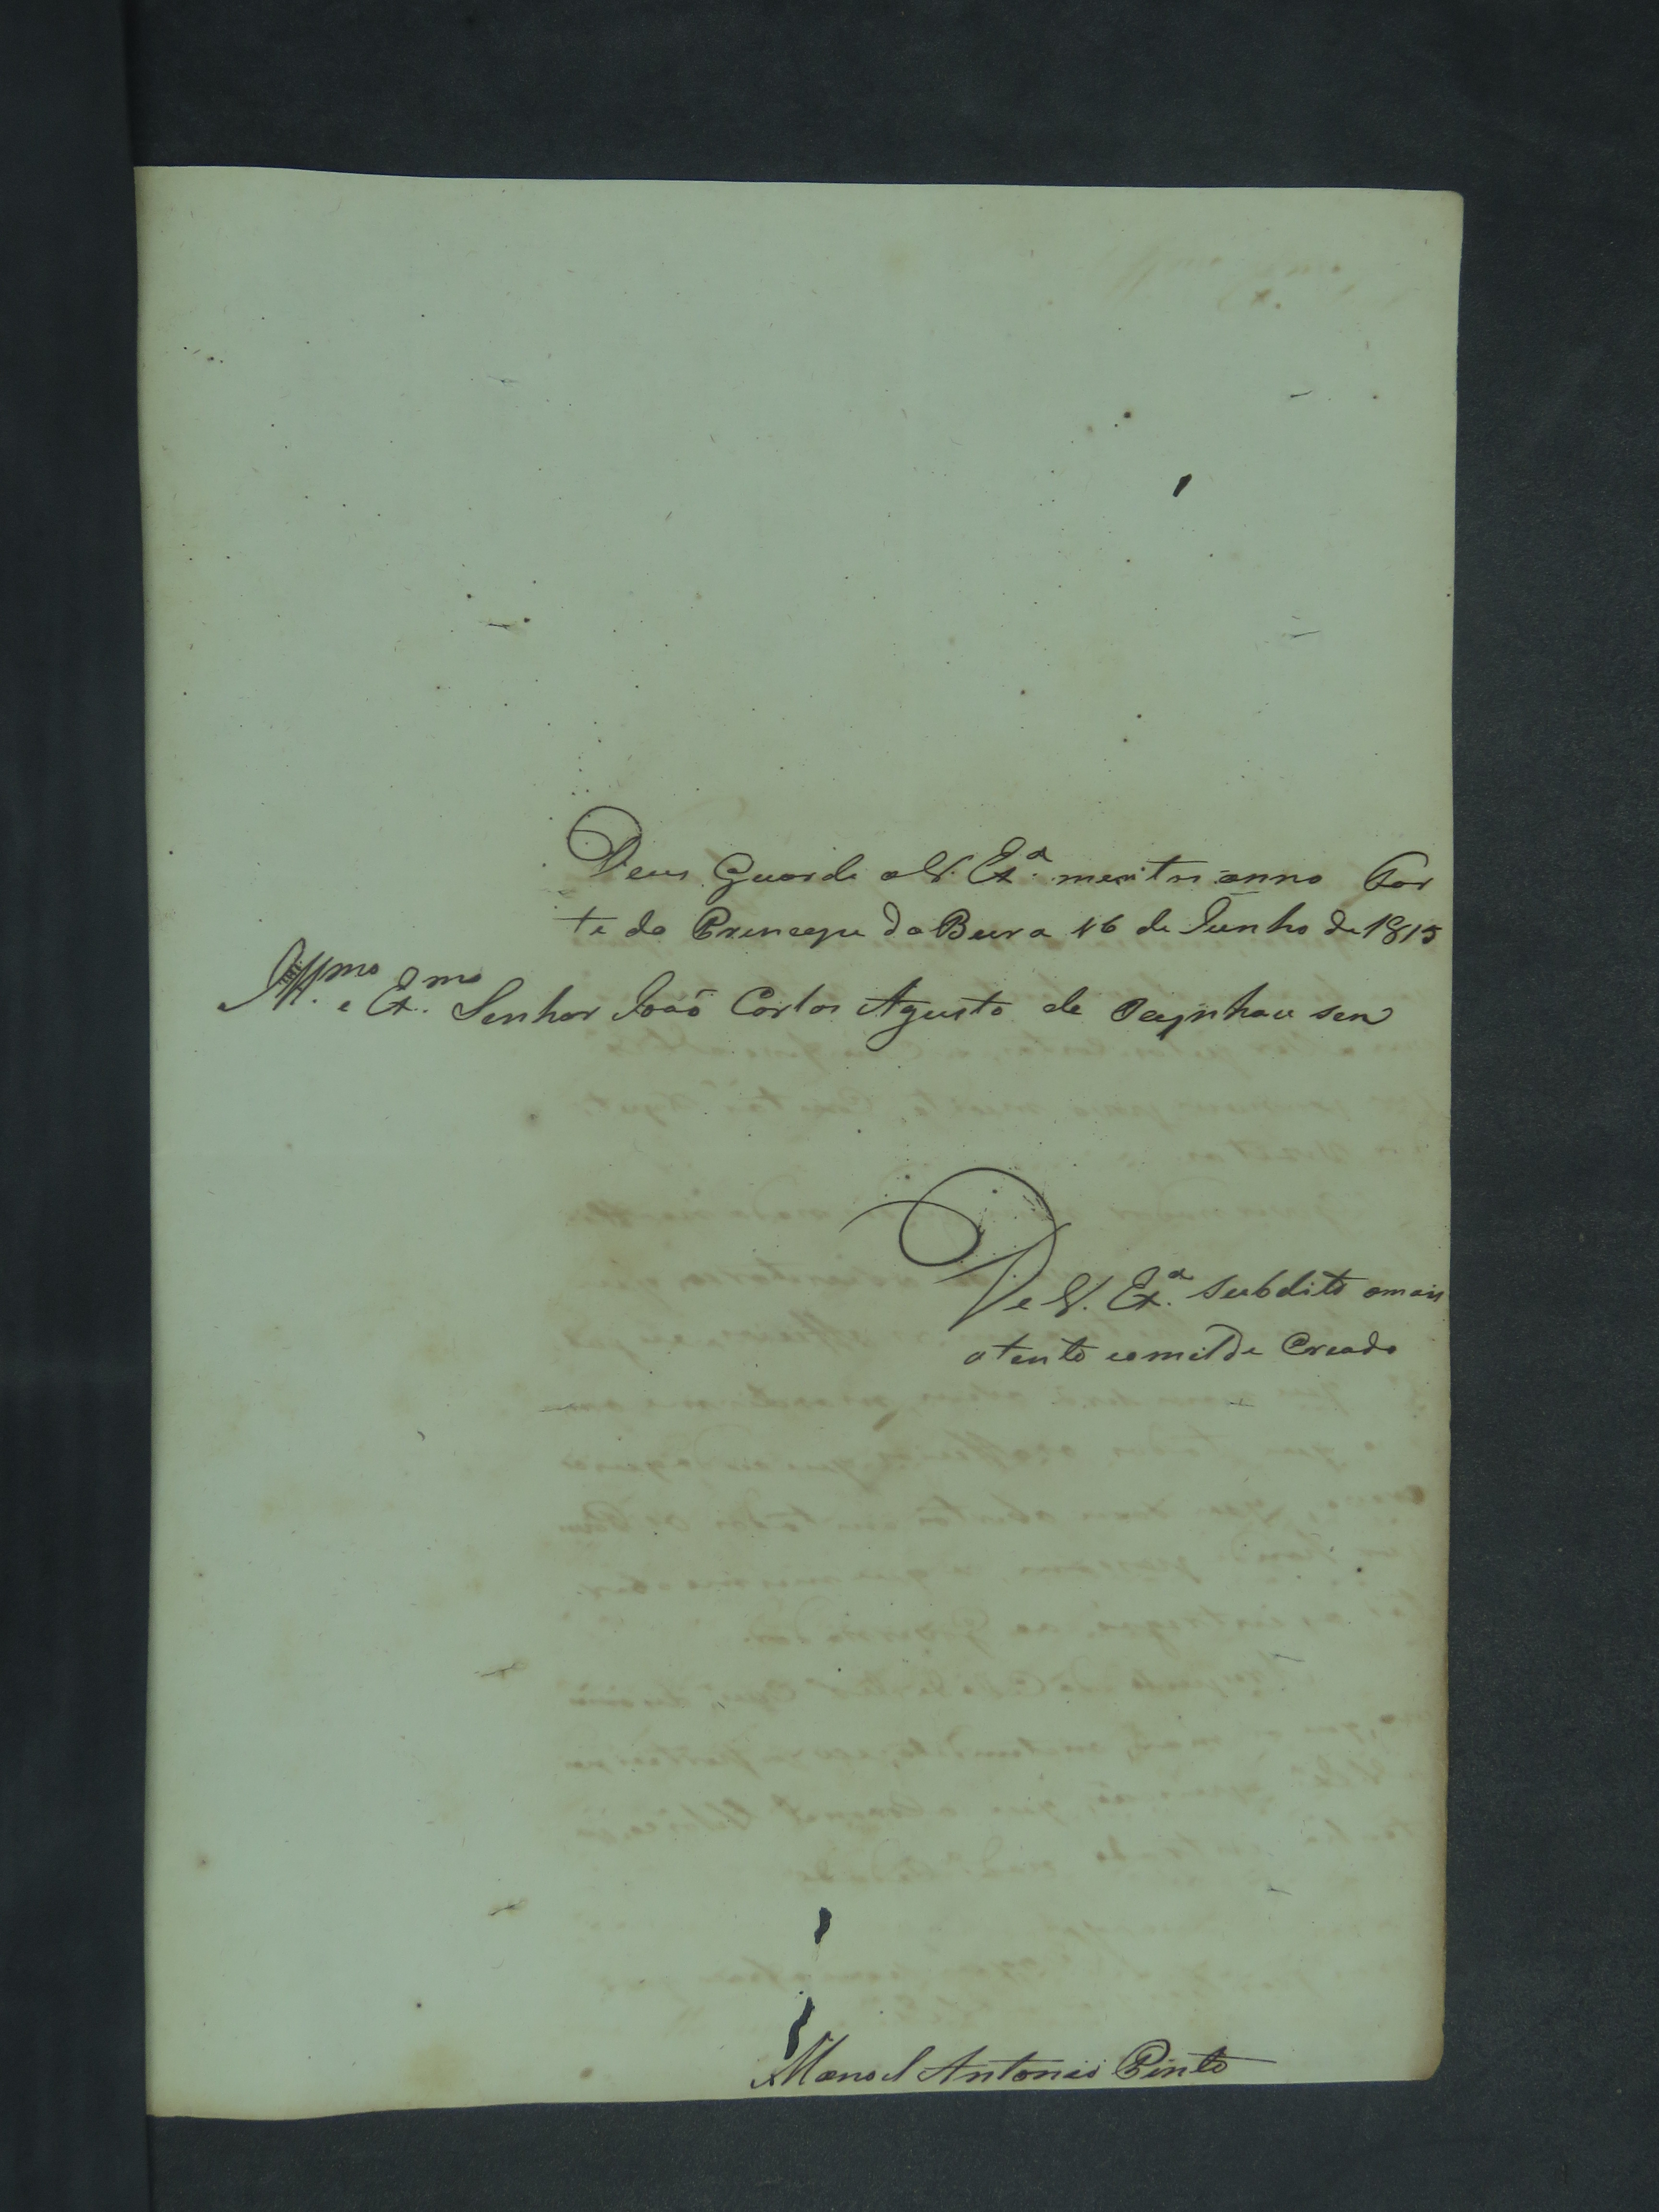 Deus Guarde a V. Ex.ª muitos anno For
te do Princepe da Beira 16 de Junho de 1815
Ill.mo e Ex.mo Senhor João Carlos Agusto de Oeynhau sen
De V. Ex.ª subdito omais
atento eomilde Creado
Manoel Antonio Pinto